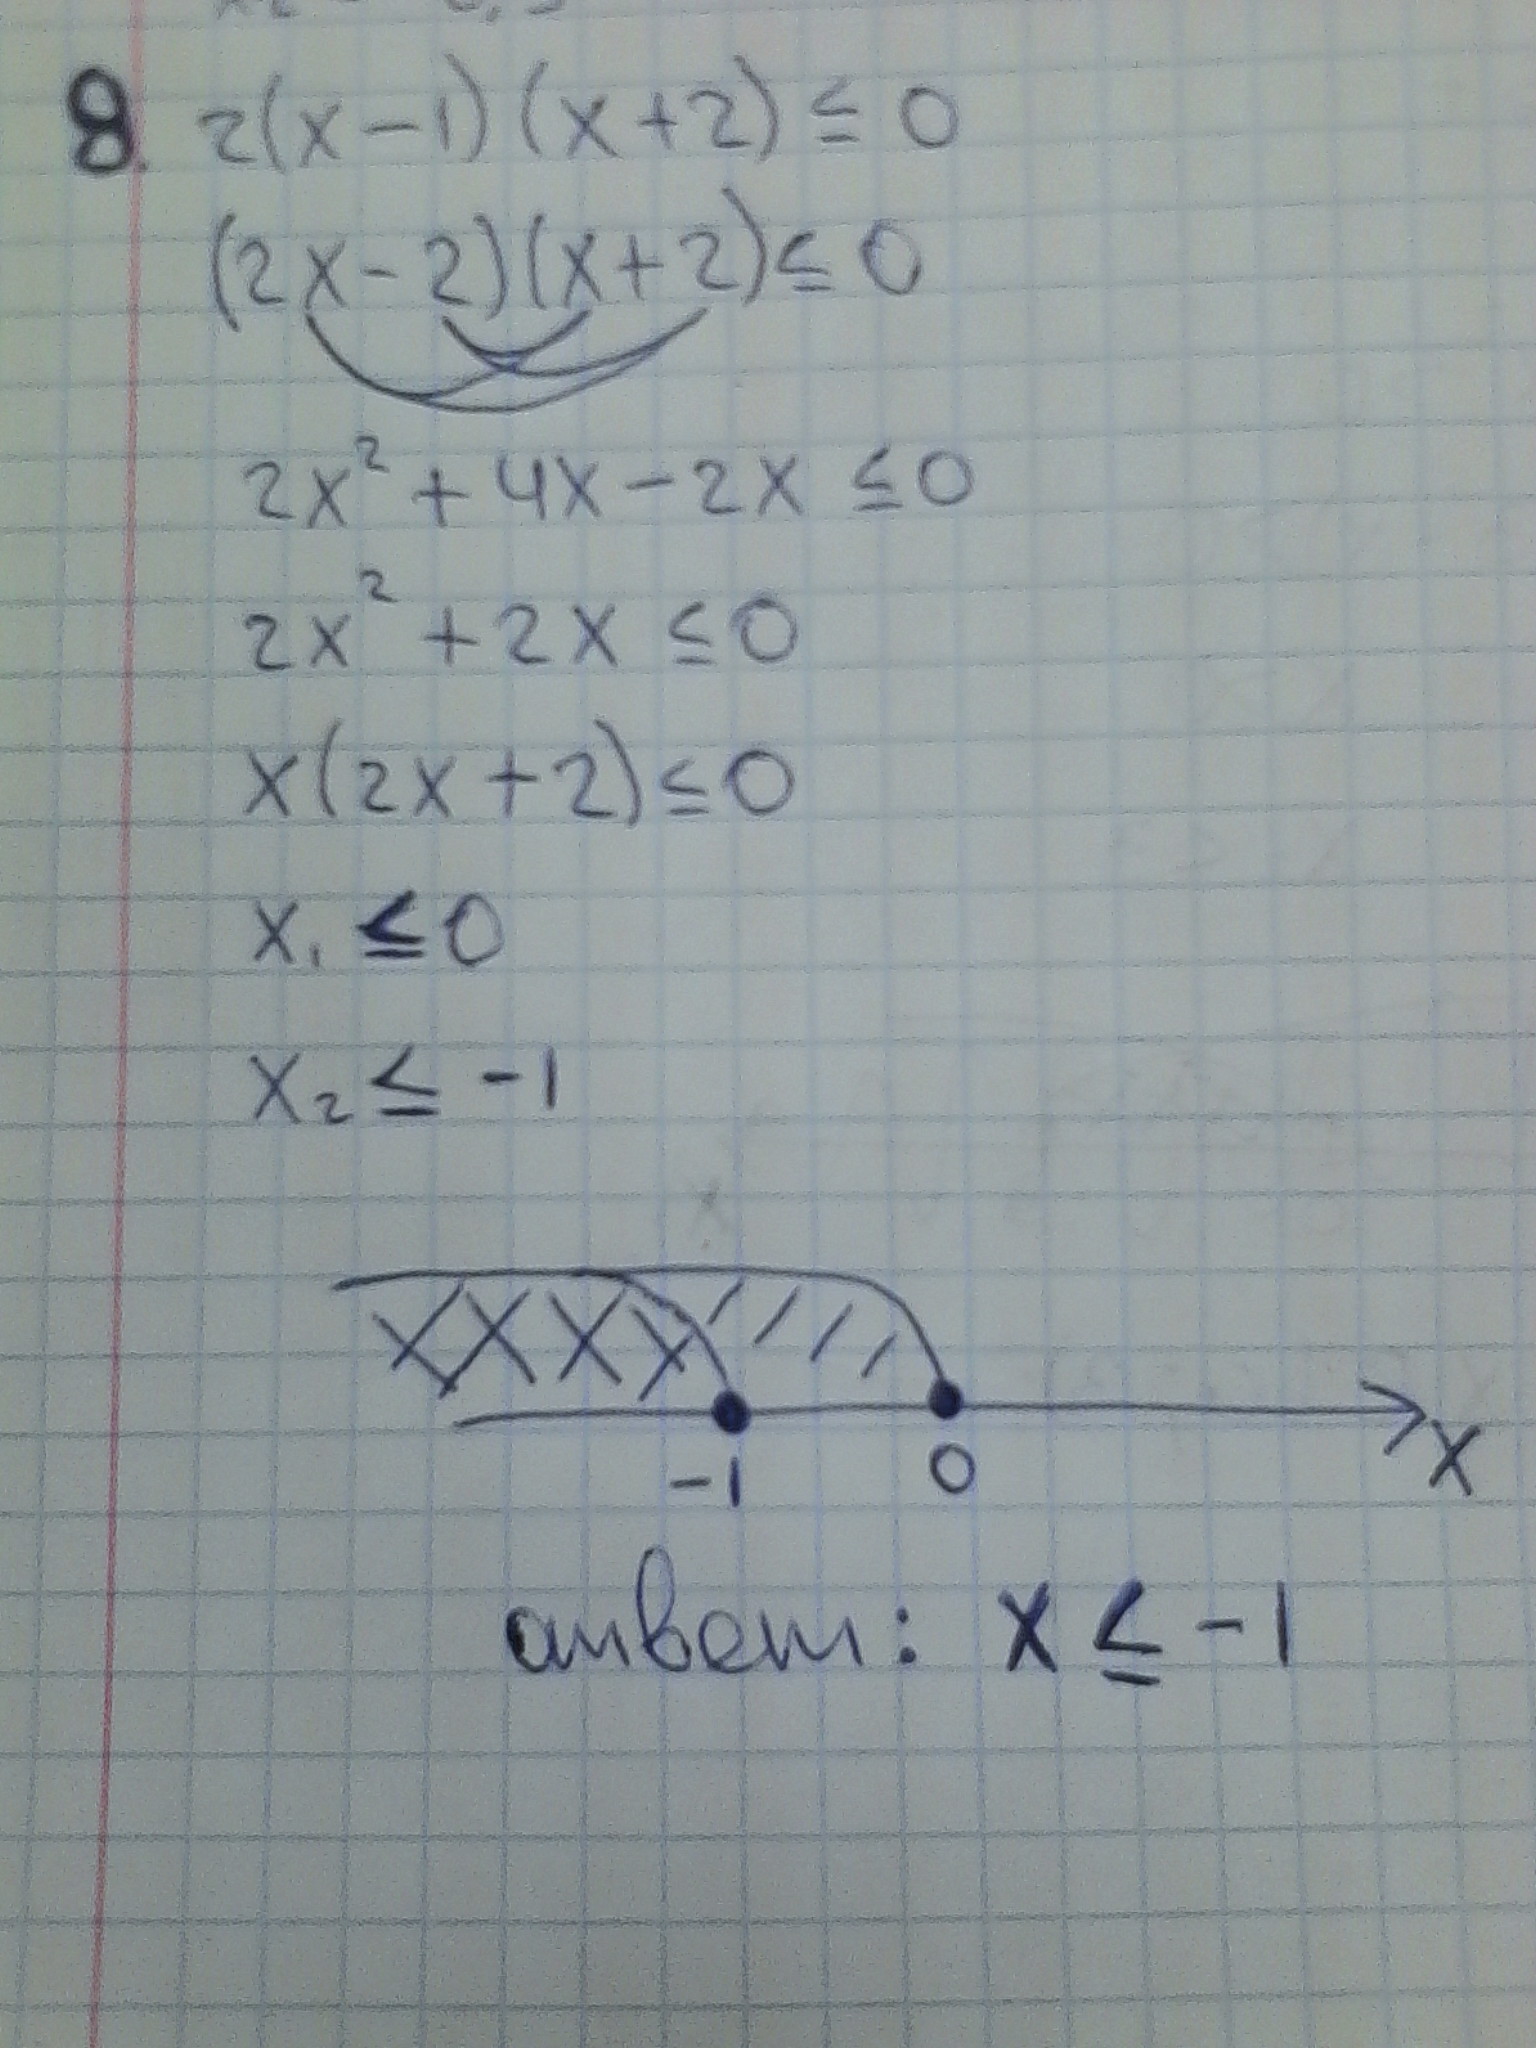 8. 2(x-1)(x+2) ≤ 0
(2x-2)(x+2) ≤ 0
2x² + 4x - 2x ≤ 0
2x² + 2x ≤ 0
x(2x+2) ≤ 0
x₁ ≤ 0
x₂ ≤ -1
-1 0 x
ответ: x ≤ -1